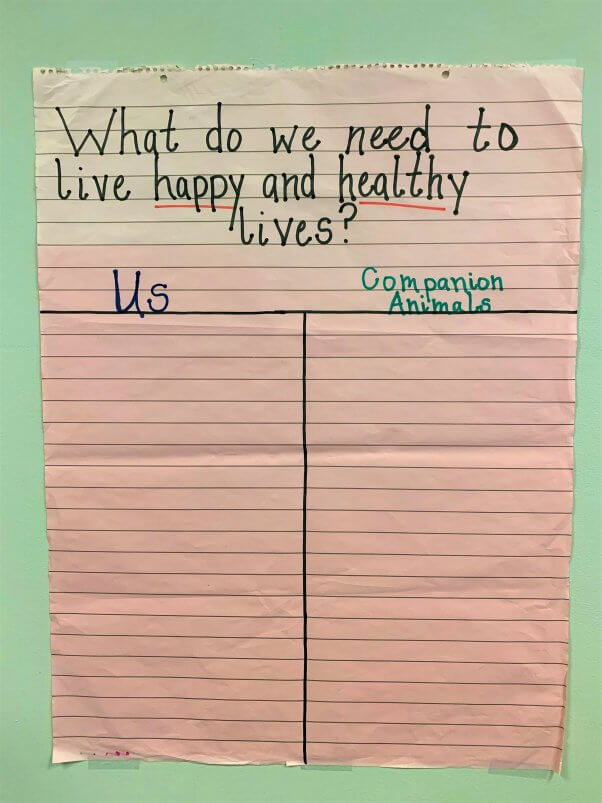 What do we need to
live happy and healthy
lives?
Us
Companion
Animals